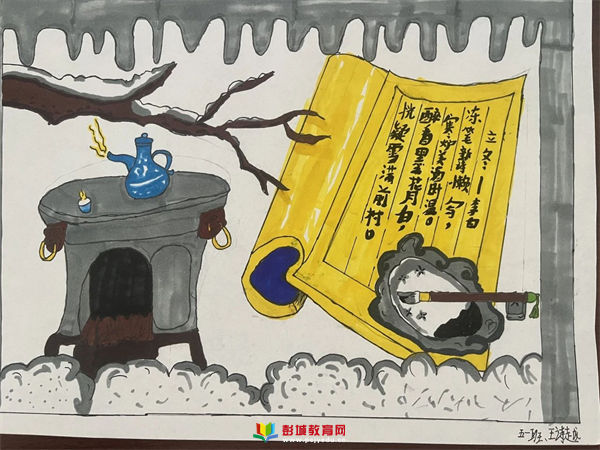 立冬 — 李白
冻笔新诗懒写，
寒炉美酒时温。
醉看墨花月白，
恍疑雪满前村。
彭城教育网
五一班、王